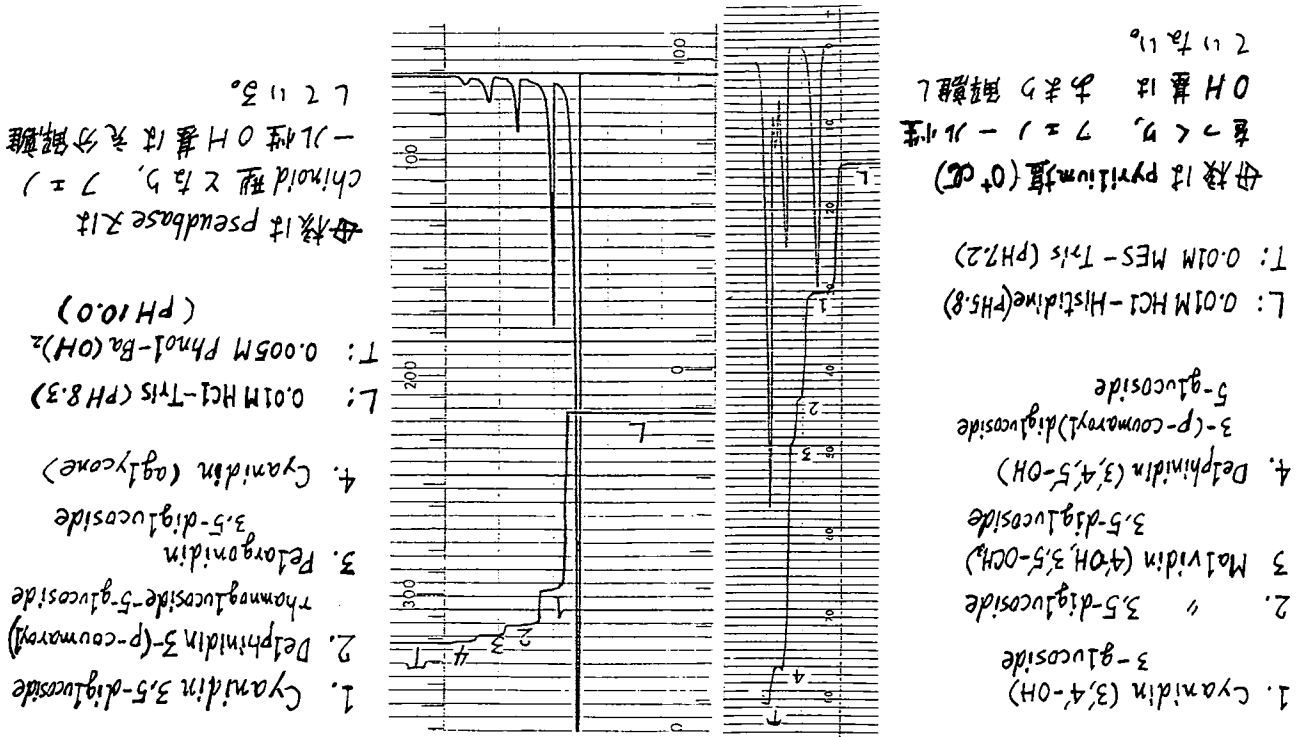 1. Cyanidin (3',4'-OH)
3-glucoside
2. 〃 3.5-diglucoside
3 Malvidin (4'-OH, 3',5'-OCH₃)
3.5-diglucoside
4. Delphinidin (3',4',5'-OH)
3-(p-coumaroyl)diglucoside
5-glucoside
L: 0.01M HCl-Histidine(PH5.8)
T: 0.01M MES-Tris (PH7.2)
母核は pyrilium塩 (O⁺Cl)
をつくり, フェノール性
OH基は あまり解離し
ていない。
T
4
3
2
1
L
0
300
200
100
0
100
T
4
3
2
1
L
1. Cyanidin 3.5-diglucoside
2. Delphinidin 3-(p-coumaroyl)
rhamnoglucoside-5-glucoside
3. Pelargonidin
3.5-diglucoside
4. Cyanidin (aglycone)
L: 0.01M HCl-Tris (PH 8.3)
T: 0.005M Phnol-Ba(OH)₂
(PH 10.0)
母核は pseudbase 又は
chinoid型となり, フェノ
ール性OH基は充分解離
している。